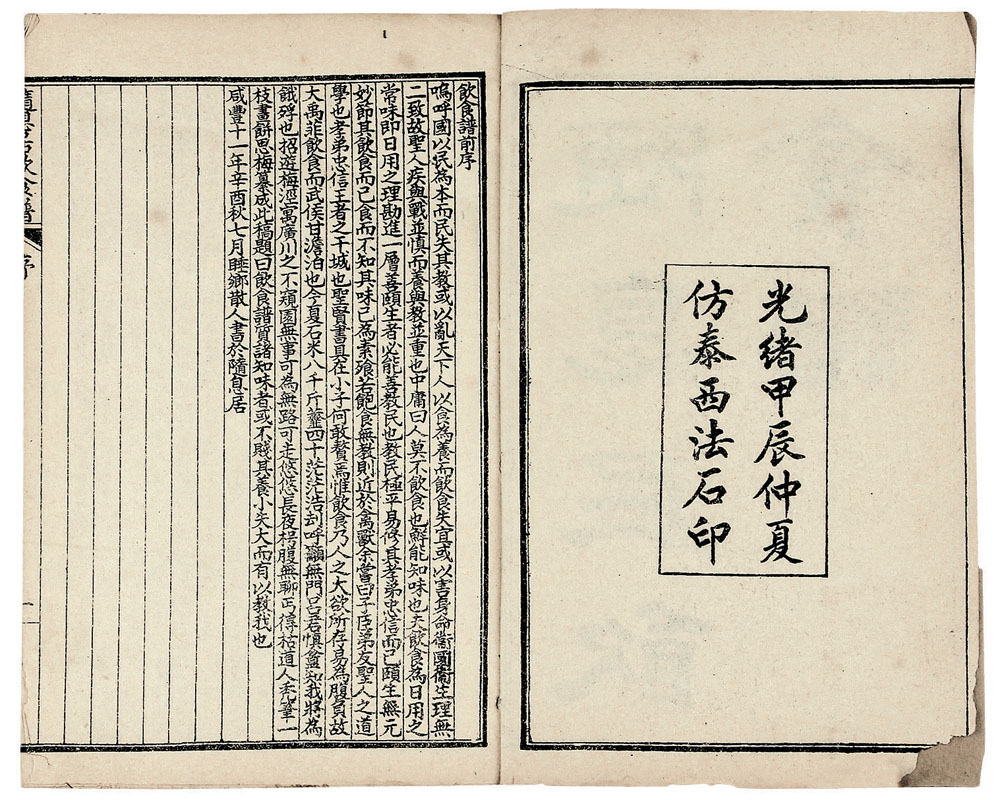 光緒甲辰仲夏
仿泰西法石印
飲食譜前序
嗚呼國以民為本而民失其教或以亂天下人以食為養而飲食失宜或以害身命衛國衛生理無
二致故聖人疾與戰並慎而養與教並重也中庸曰人莫不飲食也鮮能知味也夫飲食為日用之
常味即日用之理勘進一層善頤生者必能善教民也教民極平易修其孝弟忠信而已頤生無元
妙節其飲食而已食而不知其味已為素飱若飽食無教則近於禽獸余嘗曰子臣弟友聖人之道
學也孝弟忠信王者之干城也聖賢書具在小子何敢贅焉惟飲食乃人之大欲所存易為腹負故
大禹菲飲食而武侯甘澹泊也今夏石米八千斤虀四十茫茫浩刦呼籲無門呂君慎盦知我將為
餓殍也招遊梅涇寓廣川之不窺園無事可為無路可走悠悠長夜枵腹無聊丐得枯道人禿筆一
枝畫餅思梅纂成此稿題曰飲食譜質諸知味者或不賤其養小失大而有以教我也
咸豐十一年辛酉秋七月睡鄉散人書於隨息居
隨息居飲食譜
序
一